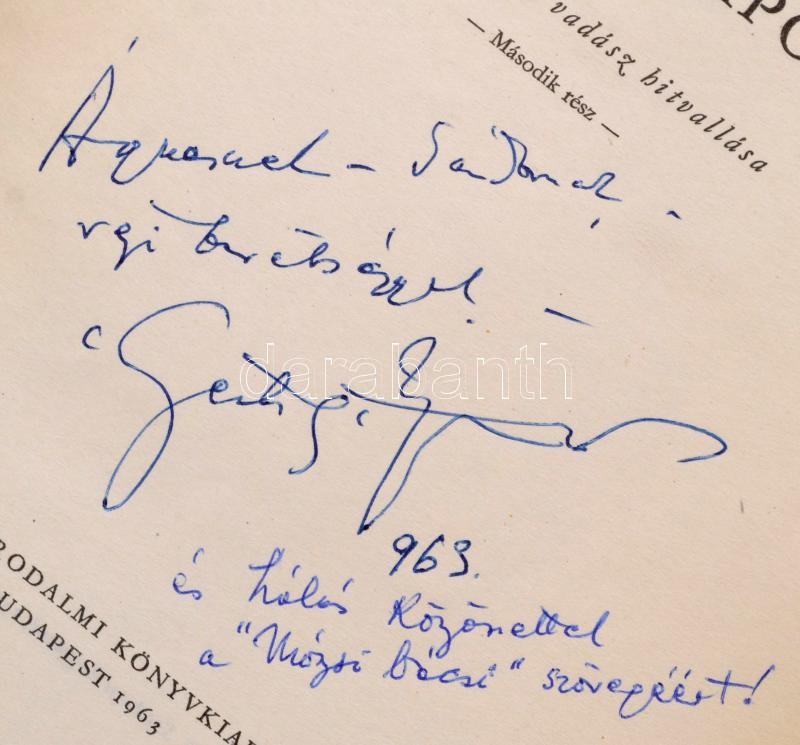 vadász hitvallása
— Második rész —
Ágnesnek – Sándornak, –
régi barátsággal! –
963.
és hálás köszönettel
a "Mózsi bácsi" szövegéért!
darabanth
RODALMI KÖNYVKIA
UDAPEST 1963